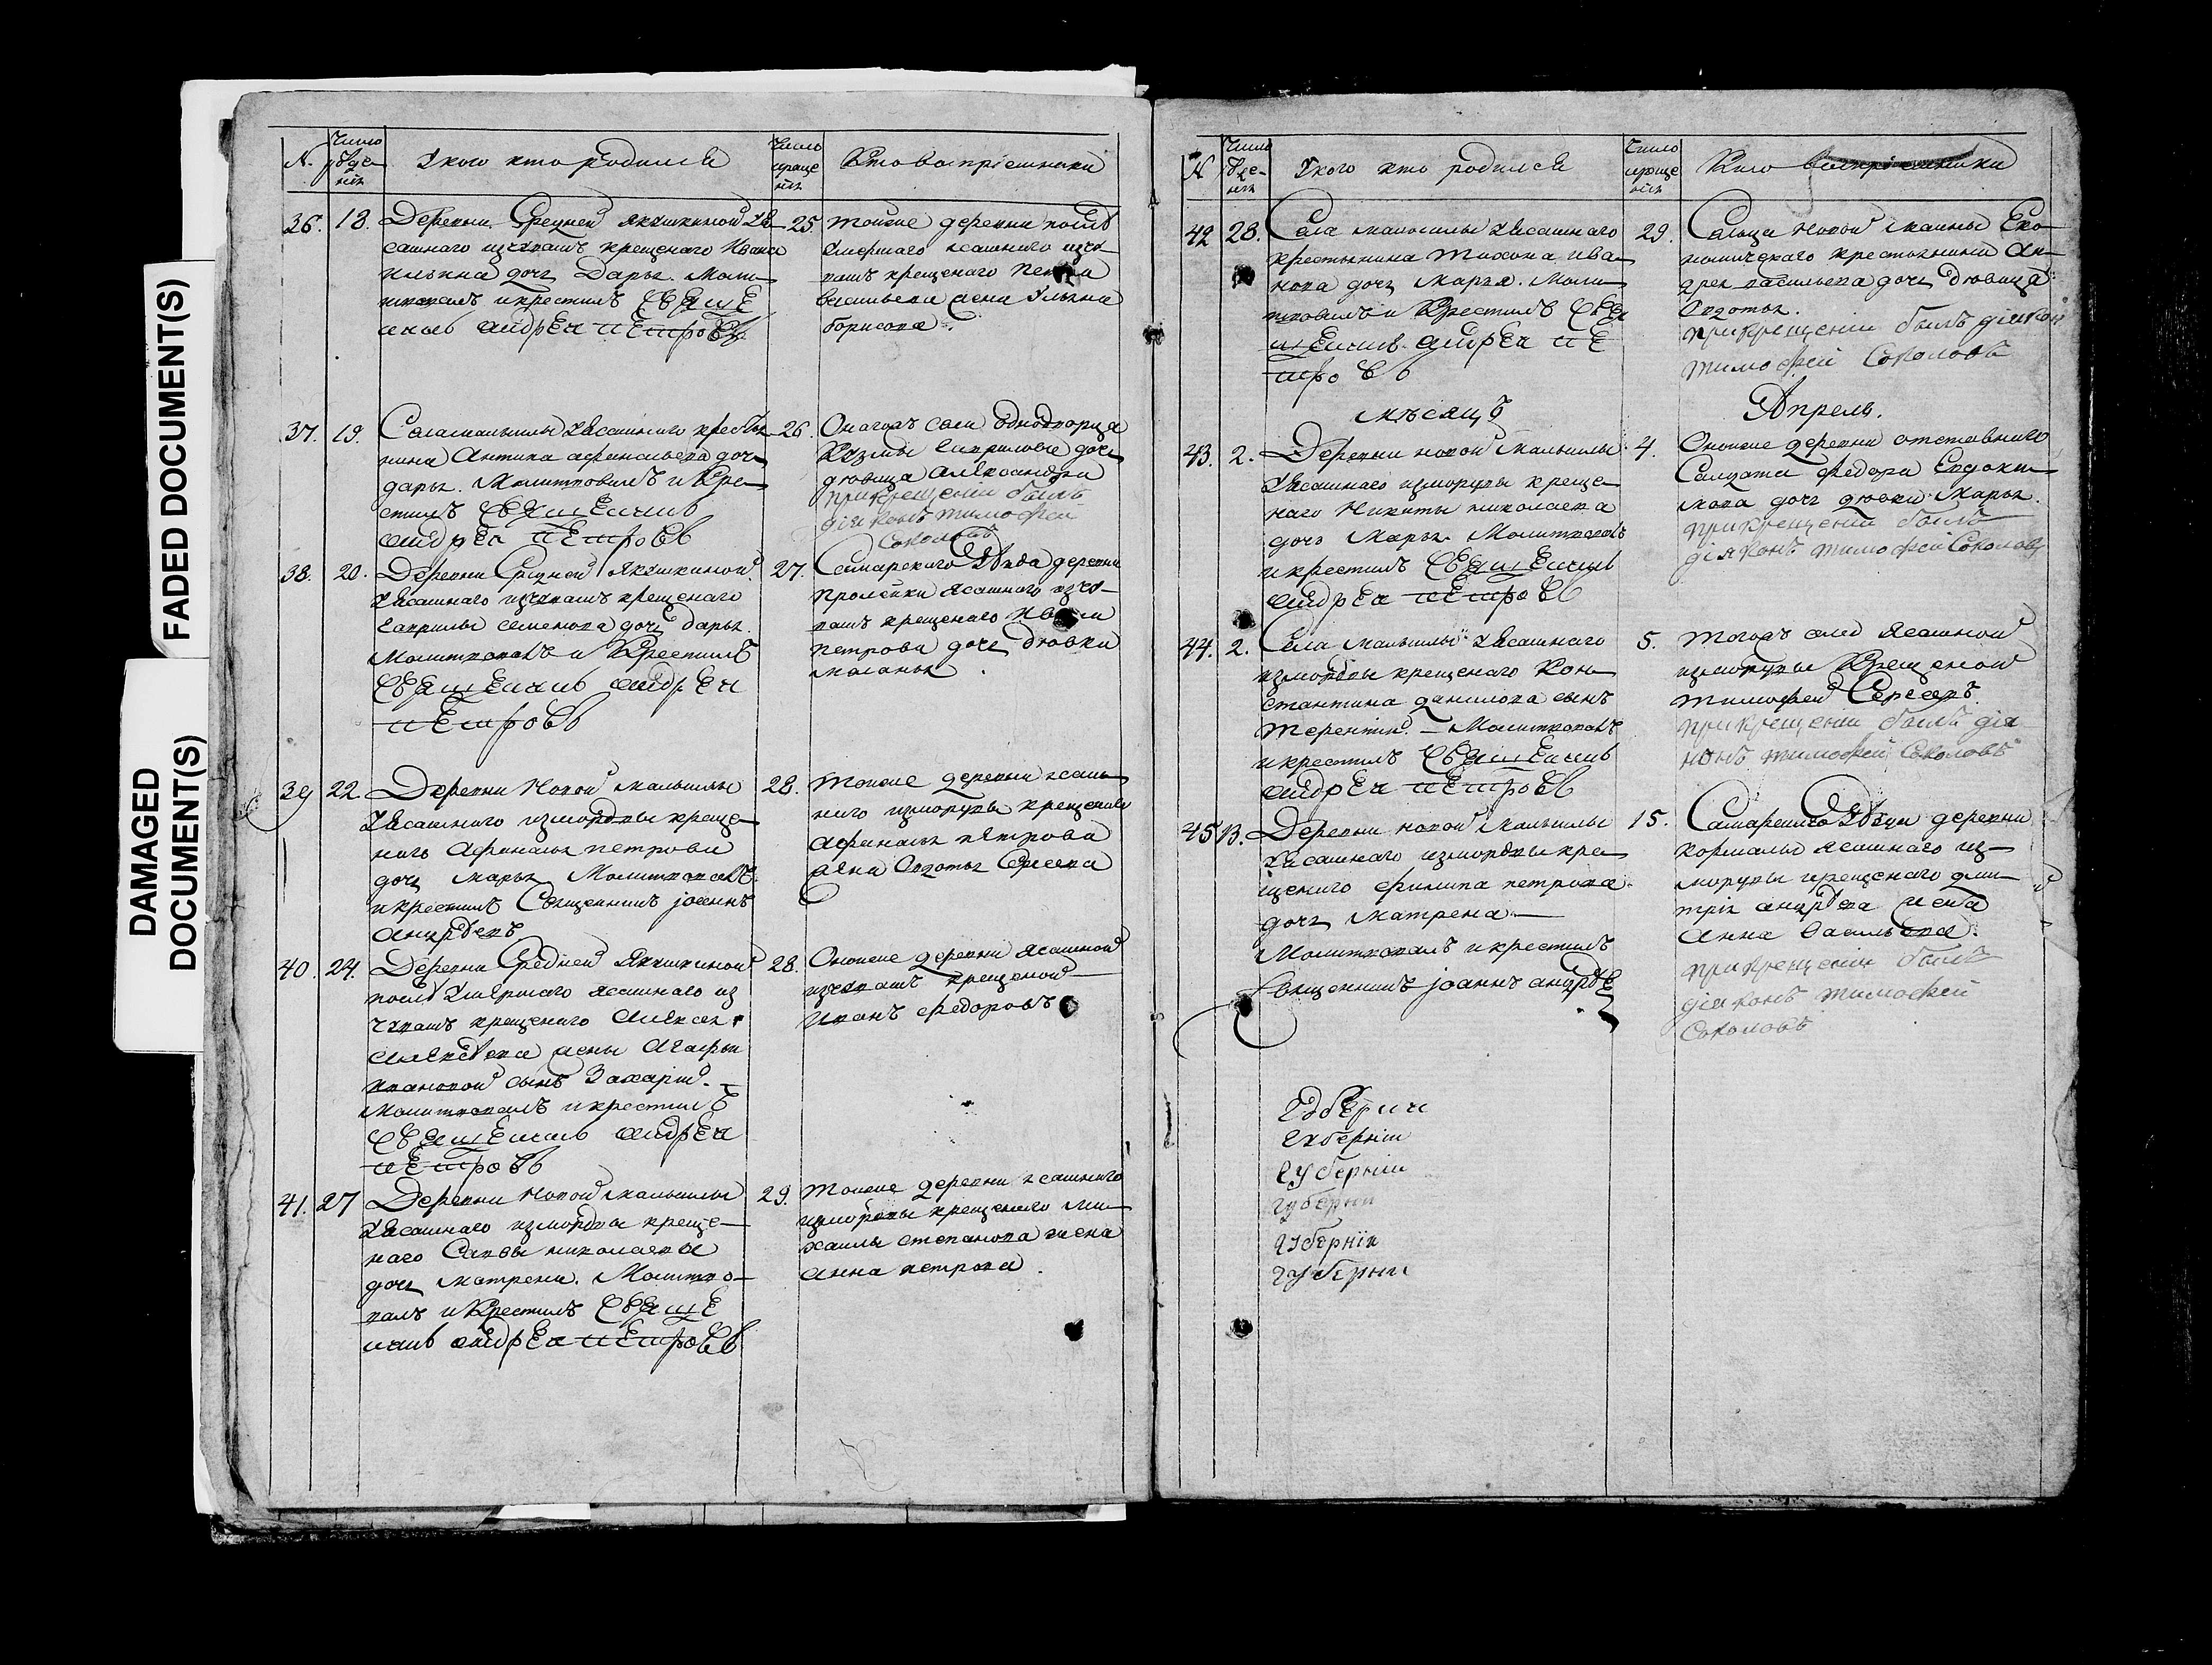 FADED DOCUMENT(S)
DAMAGED
DOCUMENT(S)
№
Число
рожде
нія
У кого кто родился
Число
креще
нія
Кто воспріемники
36.
18.
Деревни Средней Якушкиной у Я
сашнаго изчувашъ крещенаго Ивана
Ильина дочь Дарья. Моли
твовалъ икрестилъ Священ
никъ Андрей Петровъ
25
тойже деревни послѣ
умершаго ясашнаго изчу
вашъ крещенаго Петра
Васильева жена Ульяна
борисова.
37.
19.
Села малыклы уЯсашнаго крестья
нина Антипа афанасьева дочь
дарья. Молитвовалъ и Кре
стилъ Священникъ
андрей Петровъ
26.
Онагожъ села Однодворца
Козмы Гаврилова дочь
дѣвица александра
прикрещеніи былъ
діяконъ тимофей
Соколовъ
38.
20.
Деревни Средней Якушкиной
уЯсашнаго изчувашъ крещенаго
Гаврилы семенова дочь дарья.
Молитвовалъ и Крестилъ
Священникъ андрей
Петровъ
27.
Самарского уѣзда деревни
ясашнаго изчу
вашъ крещенаго Ивана
петрова дочь дѣвка
маланья.
39
22
Деревни Новой малыклы
уЯсашнаго измордвы креще
наго Афанасья петрова
дочь марья Молитвовалъ
икрестилъ Священникъ іоаннъ
андрѣевъ
28.
тойже деревни ясаш
наго измордвы крещенаго
афанасья петрова
жена Авдотья Сергеева
40.
24.
Деревни Средней Якушкиной
послѣ умершаго ясашнаго из
чувашъ крещенаго Алексея
алексѣева жены Агафьи
ивановой сынъ Захарій.
Молитвовалъ икрестилъ
Священникъ андрей
Петровъ
28.
Оноиже деревни ясашной
изчувашъ крещеной
Иванъ федоровъ
41.
27
Деревни Новой малыклы
уЯсашнаго измордвы креще
наго Саввы николаева
дочь матрена. Молитво
валъ и Крестилъ Священ
никъ андрей Петровъ
29.
тойже деревни ясашнаго
измордвы крещенаго ми
хаилы степанова жена
анна петрова.
№
Число
рожде
нія
У кого кто родился
Число
креще
нія
Кто воспріемники
42
28.
Села малыклы уЯсашнаго
крестьянина Тихона ива
нова дочь Марья. Моли
твовалъ и Крестилъ Свя
щенникъ андрей Пе
тровъ
29.
Сельца Новой маины Эко
номическаго крестьянина Ан
дрея васильева дочь дѣвица
Авдотья.
прикрещеніи былъ діяконъ
тимофей Соколовъ
мѣсяцъ
Апрель.
43.
2.
Деревни новой малыклы
уЯсашнаго измордвы креще
наго Никиты николаева
дочь Марья Молитвовалъ
икрестилъ Священникъ
андрей Петровъ
4.
Оноиже деревни отставнаго
Салдата федора Евдоки
мова дочь дѣвка Марья.
прикрещеніи былъ
діяконъ тимофей Соколовъ
44.
2.
Села Малыклы уЯсашнаго
измордвы крещенаго Кон
стантина данилова сынъ
Терентій. Молитвовалъ
икрестилъ Священникъ
андрей Петровъ
5.
Тогожъ села Ясашной
измордвы Крещеной
тимофей Сергеевъ
прикрещеніи былъ дія
конъ тимофей Соколовъ
45
13.
Деревни новой малыклы
уЯсашнаго измордвы кре
щенаго Филипа петрова
дочь матрена
Молитвовалъ икрестилъ
Священникъ іоаннъ андрѣе
15.
Самарскаго уѣзда деревни
кормалы ясашнаго из
мордвы крещенаго дми
трія андрѣева жена
Анна Васильева.
прикрещеніи былъ
діяконъ тимофей
Соколовъ
губернии
губерніи
губерніи
губерни
губернія
губерни